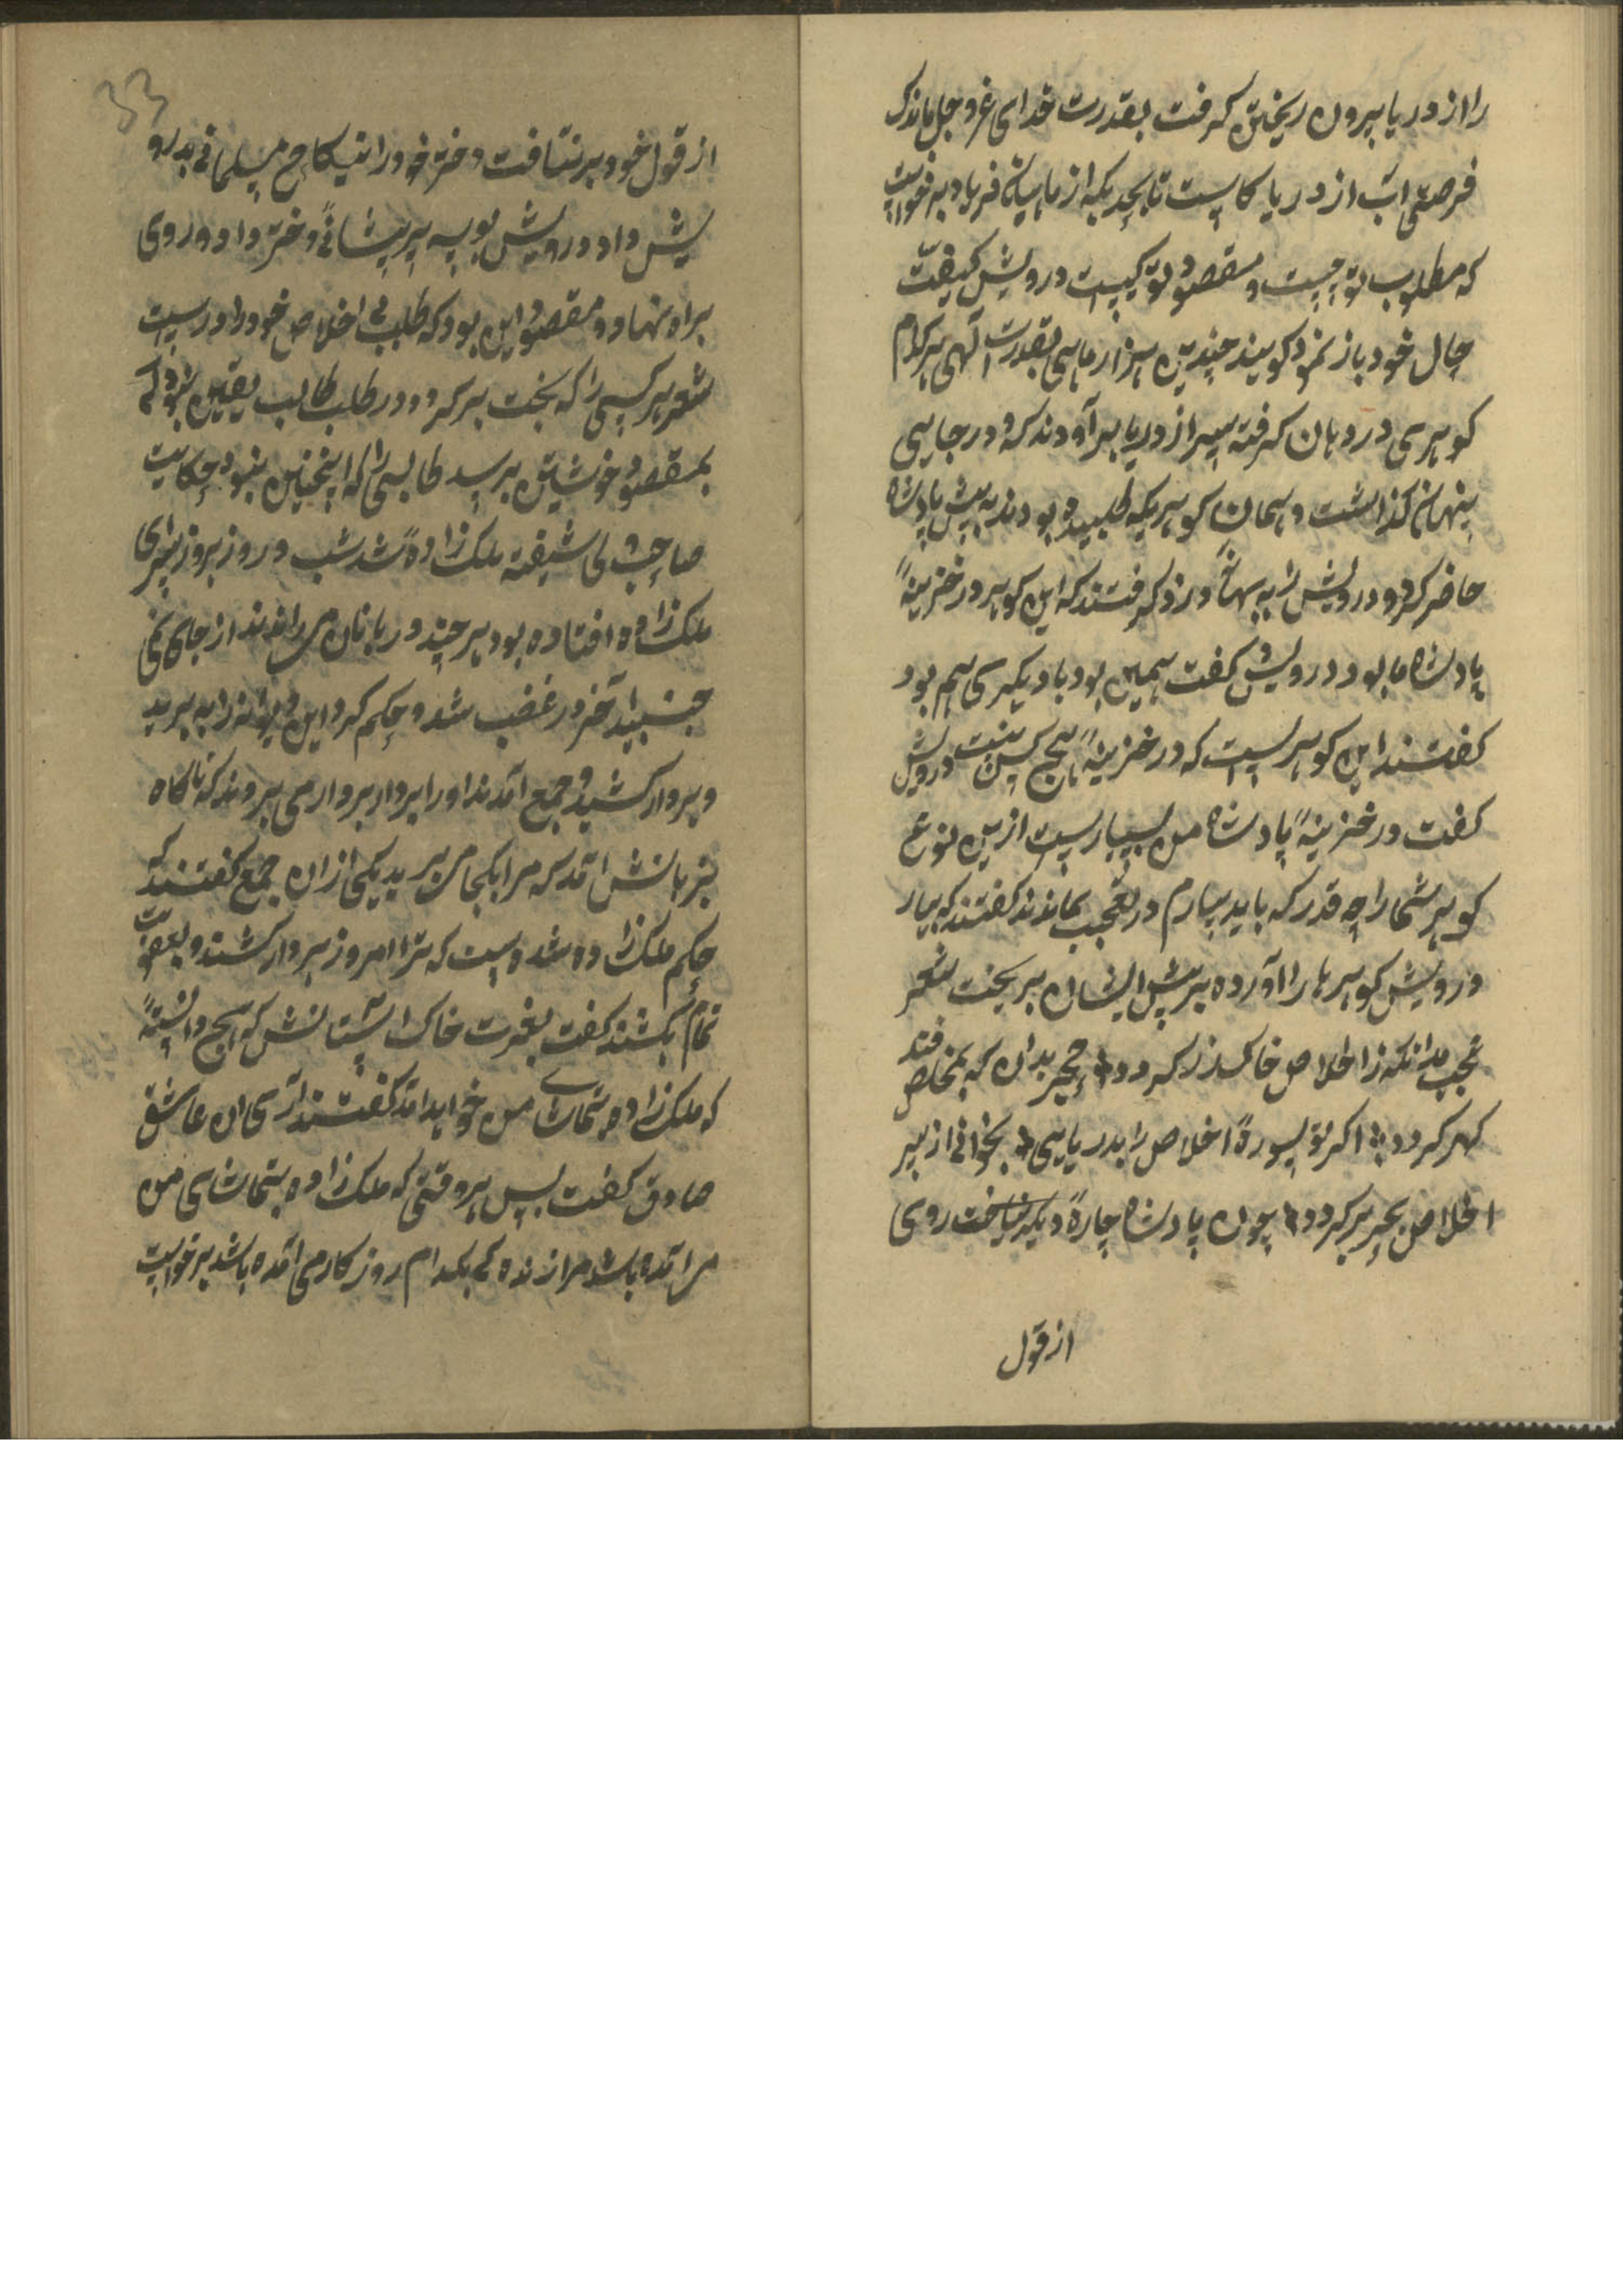 را از دریا بیرون ریختن کرفت بقدرت خدای عز و جل ماندک
فرصتی اب از دریا کاست تا بحدیکه از ماهیان فریاد برخواست
که مطلوب تو چیست و مقصود تو کیست درویش کیفیت
حال خود باز نمود کویند چندین هزار ماهی بقدرت الهی هر کدام
کوهری در دهان کرفته بیر از دریا برآوردند که در جایی
پنهان کذاشت و همان کوهریکه طلبیده بودند به پیش پادشاه
حاضر کرد و درویش را به بهانه دزد کرفتند که این کوهر در خزینهٔ
پادشاه ما بود درویش کفت همین بود یا دیکری هم بود
کفتند این کوهریست که در خزینهٔ هیچ کس نیست درویش
کفت در خزینهٔ پادشاه من بسیارست ازین نوع
کوهر شما را چه قدر که باید بیارم در تعجب بماندند کفتند که بیار
درویش کوهرها را آورده به پیش ایشان بریخت شعر
عجب مدانکه ز اخلاص خاک زر کردد حجر بدان که بمخلص فتد
کهر کردد اکر تو سورهٔ اخلاص را بدریایی بخوانی از سر
اخلاص بحر بر کردد چون پادشاه چارهٔ دیکر نیافت روی
از قول
33
از قول خود برنتافت دختر خود را بنیکاح مسلمانی بدرو
یش داد درویش بوسه بر پیشانی دختر داد و روی
براه نهاد و مقصود این بود که طلب بی اخلاص خود را در
شعر هر کسی را که بخت بر کردد در طلب طالب یقین نبود کی
بمقصود خویشتن برسد طالبی را که اینچنین نبود حکایت
صاحب دلی شیفته ملک زادهٔ شد شب و روز بر در سرای
ملک زاده افتاده بود هر چند دربانان می راندند از جای نمی
جنبید آخر در غضب شد و حکم کرد این دیوانه را به برید
و بردار کشید جمع آمدند او را بردار بردار می بردند که ناکاه
بر زبانش آمد که مرا بکجا می برید یکی از آن جمع کفتند که
حکم ملک زاده شده است که ترا امروز بر دار کشند و بعقوبت
تمام بکشند کفت بعزت خاک آستانش که هیچ دانستهٔ
که ملک زاده بتماشای من خواهد آمد کفتند آری آن عاشق
صادق کفت پس هر وقتی که ملک زاده بتماشای من
مرا آمده باشد مرا زنده کی بکدام روز کار می آمده باشد برخواست